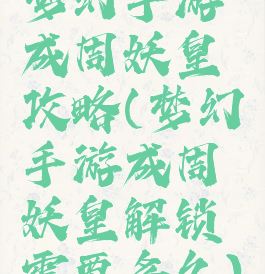 梦幻手游
成周妖皇
攻略(梦幻
手游成周
妖皇解锁
需要多久)